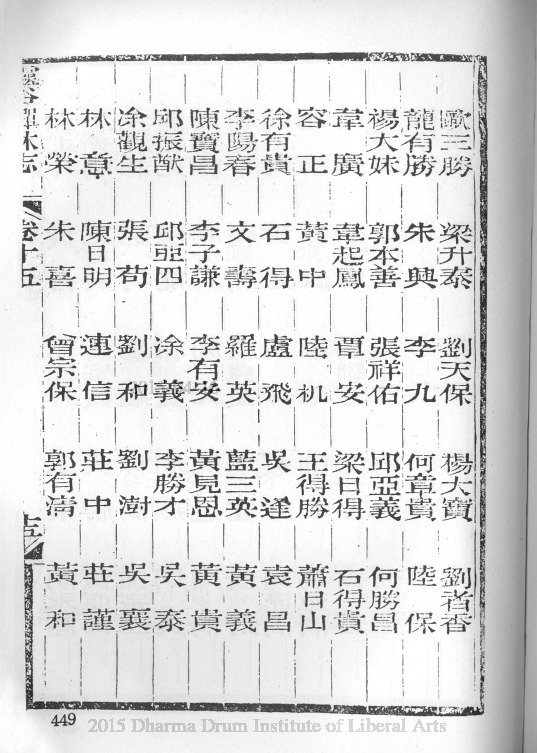 歐三勝 梁升泰 劉天保 楊大寶 劉者香
龍有勝 朱興 李九 何章貴 陸保
楊大妹 郭本善 張祥佑 邱亞義 何勝昌
韋廣 韋起鳳 覃安 梁日得 石得貴
容正 黃中 陸机 王得勝 蕭日山
徐有貴 石得 盧飛 吳逢 袁昌
李陽春 文壽 羅英 藍三英 黃義
陳寶昌 李子謙 李有安 黃見恩 黃貴
邱振猷 邱亞四 涂義 李勝才 吳泰
涂觀生 張苟 劉和 劉澍 吳襄
林意 陳日明 連信 莊中 莊謹
林榮 朱喜 曾宗保 郭有清 黃和
靈谷禪林志 卷十五 十三
449
2015 Dharma Drum Institute of Liberal Arts